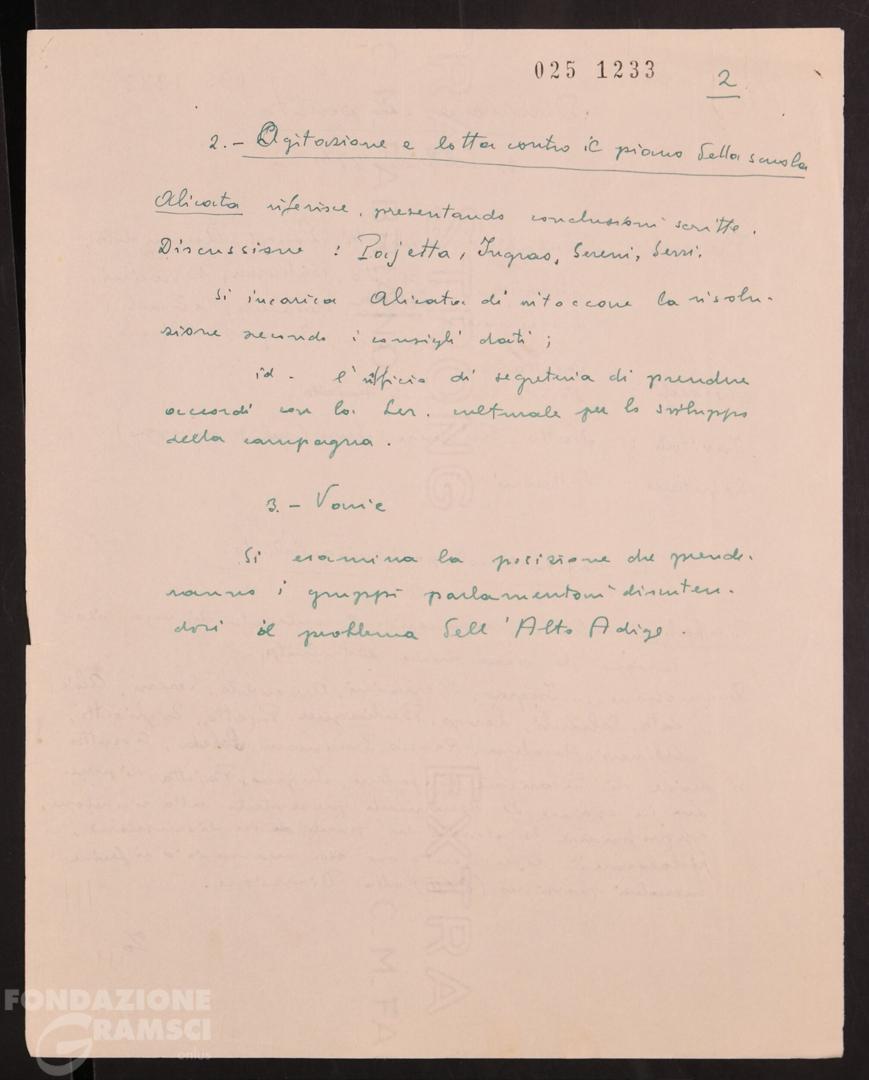 025 1233
2
2. - Agitazione e lotta contro il piano della scuola
Alicata riferisce, presentando conclusioni scritte.
Discussione : Pajetta, Ingrao, Sereni, Serri.
Si incarica Alicata di ritoccare la risolu-
zione secondo i consigli dati ;
id. l'ufficio di segreteria di prendere
accordi con la Sez. culturale per lo sviluppo
della campagna.
3. - Varie
Si esamina la posizione che prende-
ranno i gruppi parlamentari discuten-
dosi il problema dell'Alto Adige.
FONDAZIONE
GRAMSCI
onlus